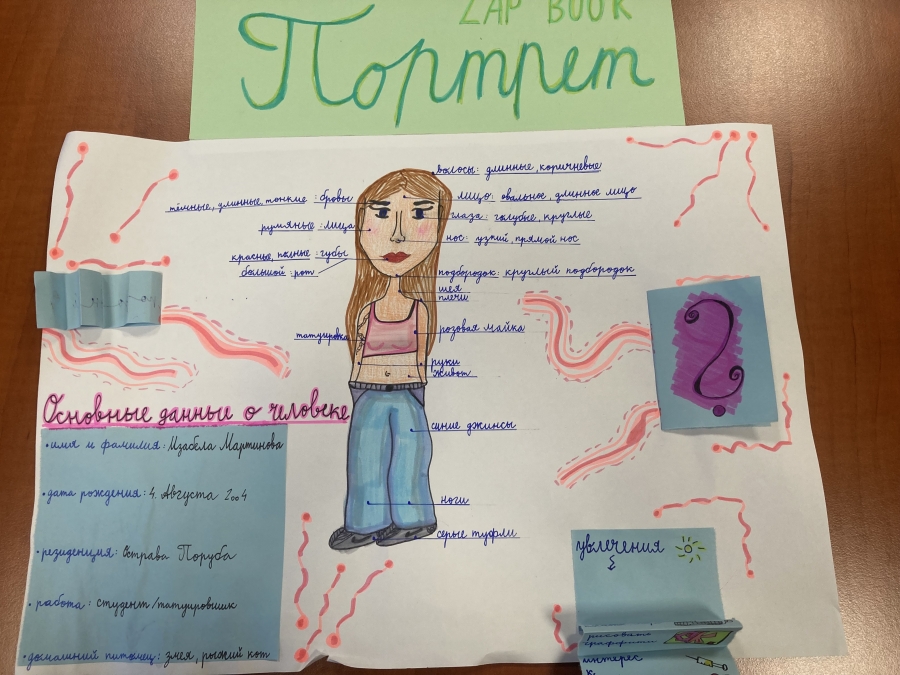 ZAP BOOK
Портрет
волосы: длинные, коричневые
тёмные, длинные, тонкие: брови
лицо: овальное, длинное лицо
глаза: голубые, круглые
румяные: лица
нос: узкий, прямой нос
красные, полные: губы
большой: рот
подбородок: круглый подбородок
шея
плечи
татуировка
розовая майка
руки
живот
Основные данные о человеке
синие джинсы
• имя и фамилия: Изабела Мартинова
• дата рождения: 4. Августа 2004
• резиденция: Острава Поруба
• работа: студент/татуировшик
• домашний питомец: змея, рыжий кот
ноги
серые туфли
увлечения
рисовать
граффити
интерес
к